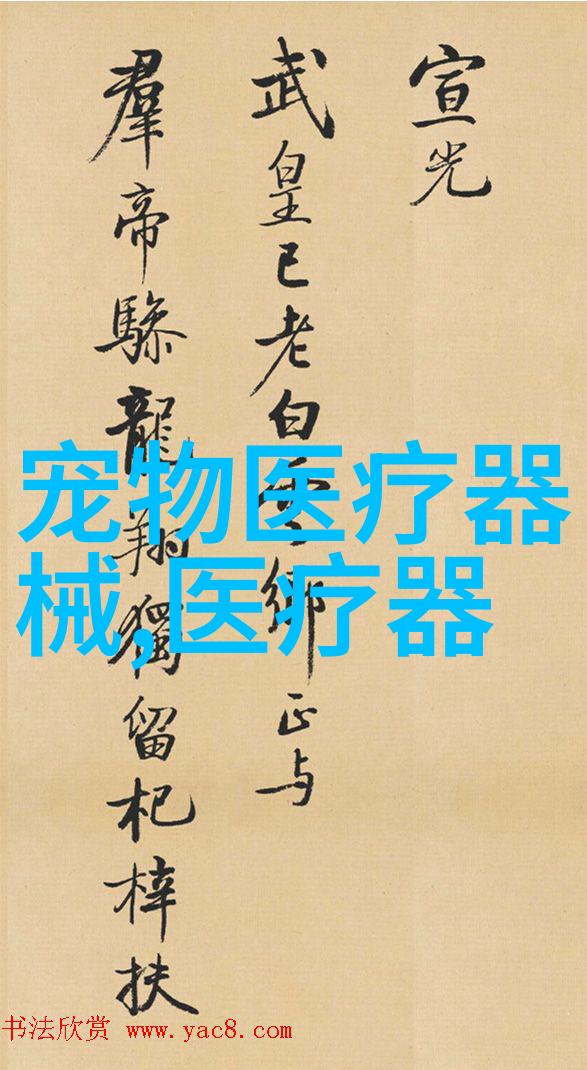 宣光
武皇已老白雲鄉正与
羣帝驂龍翔獨留杞梓扶
宠物医疗器
械,医疗器
书法欣赏 www.yac8.com